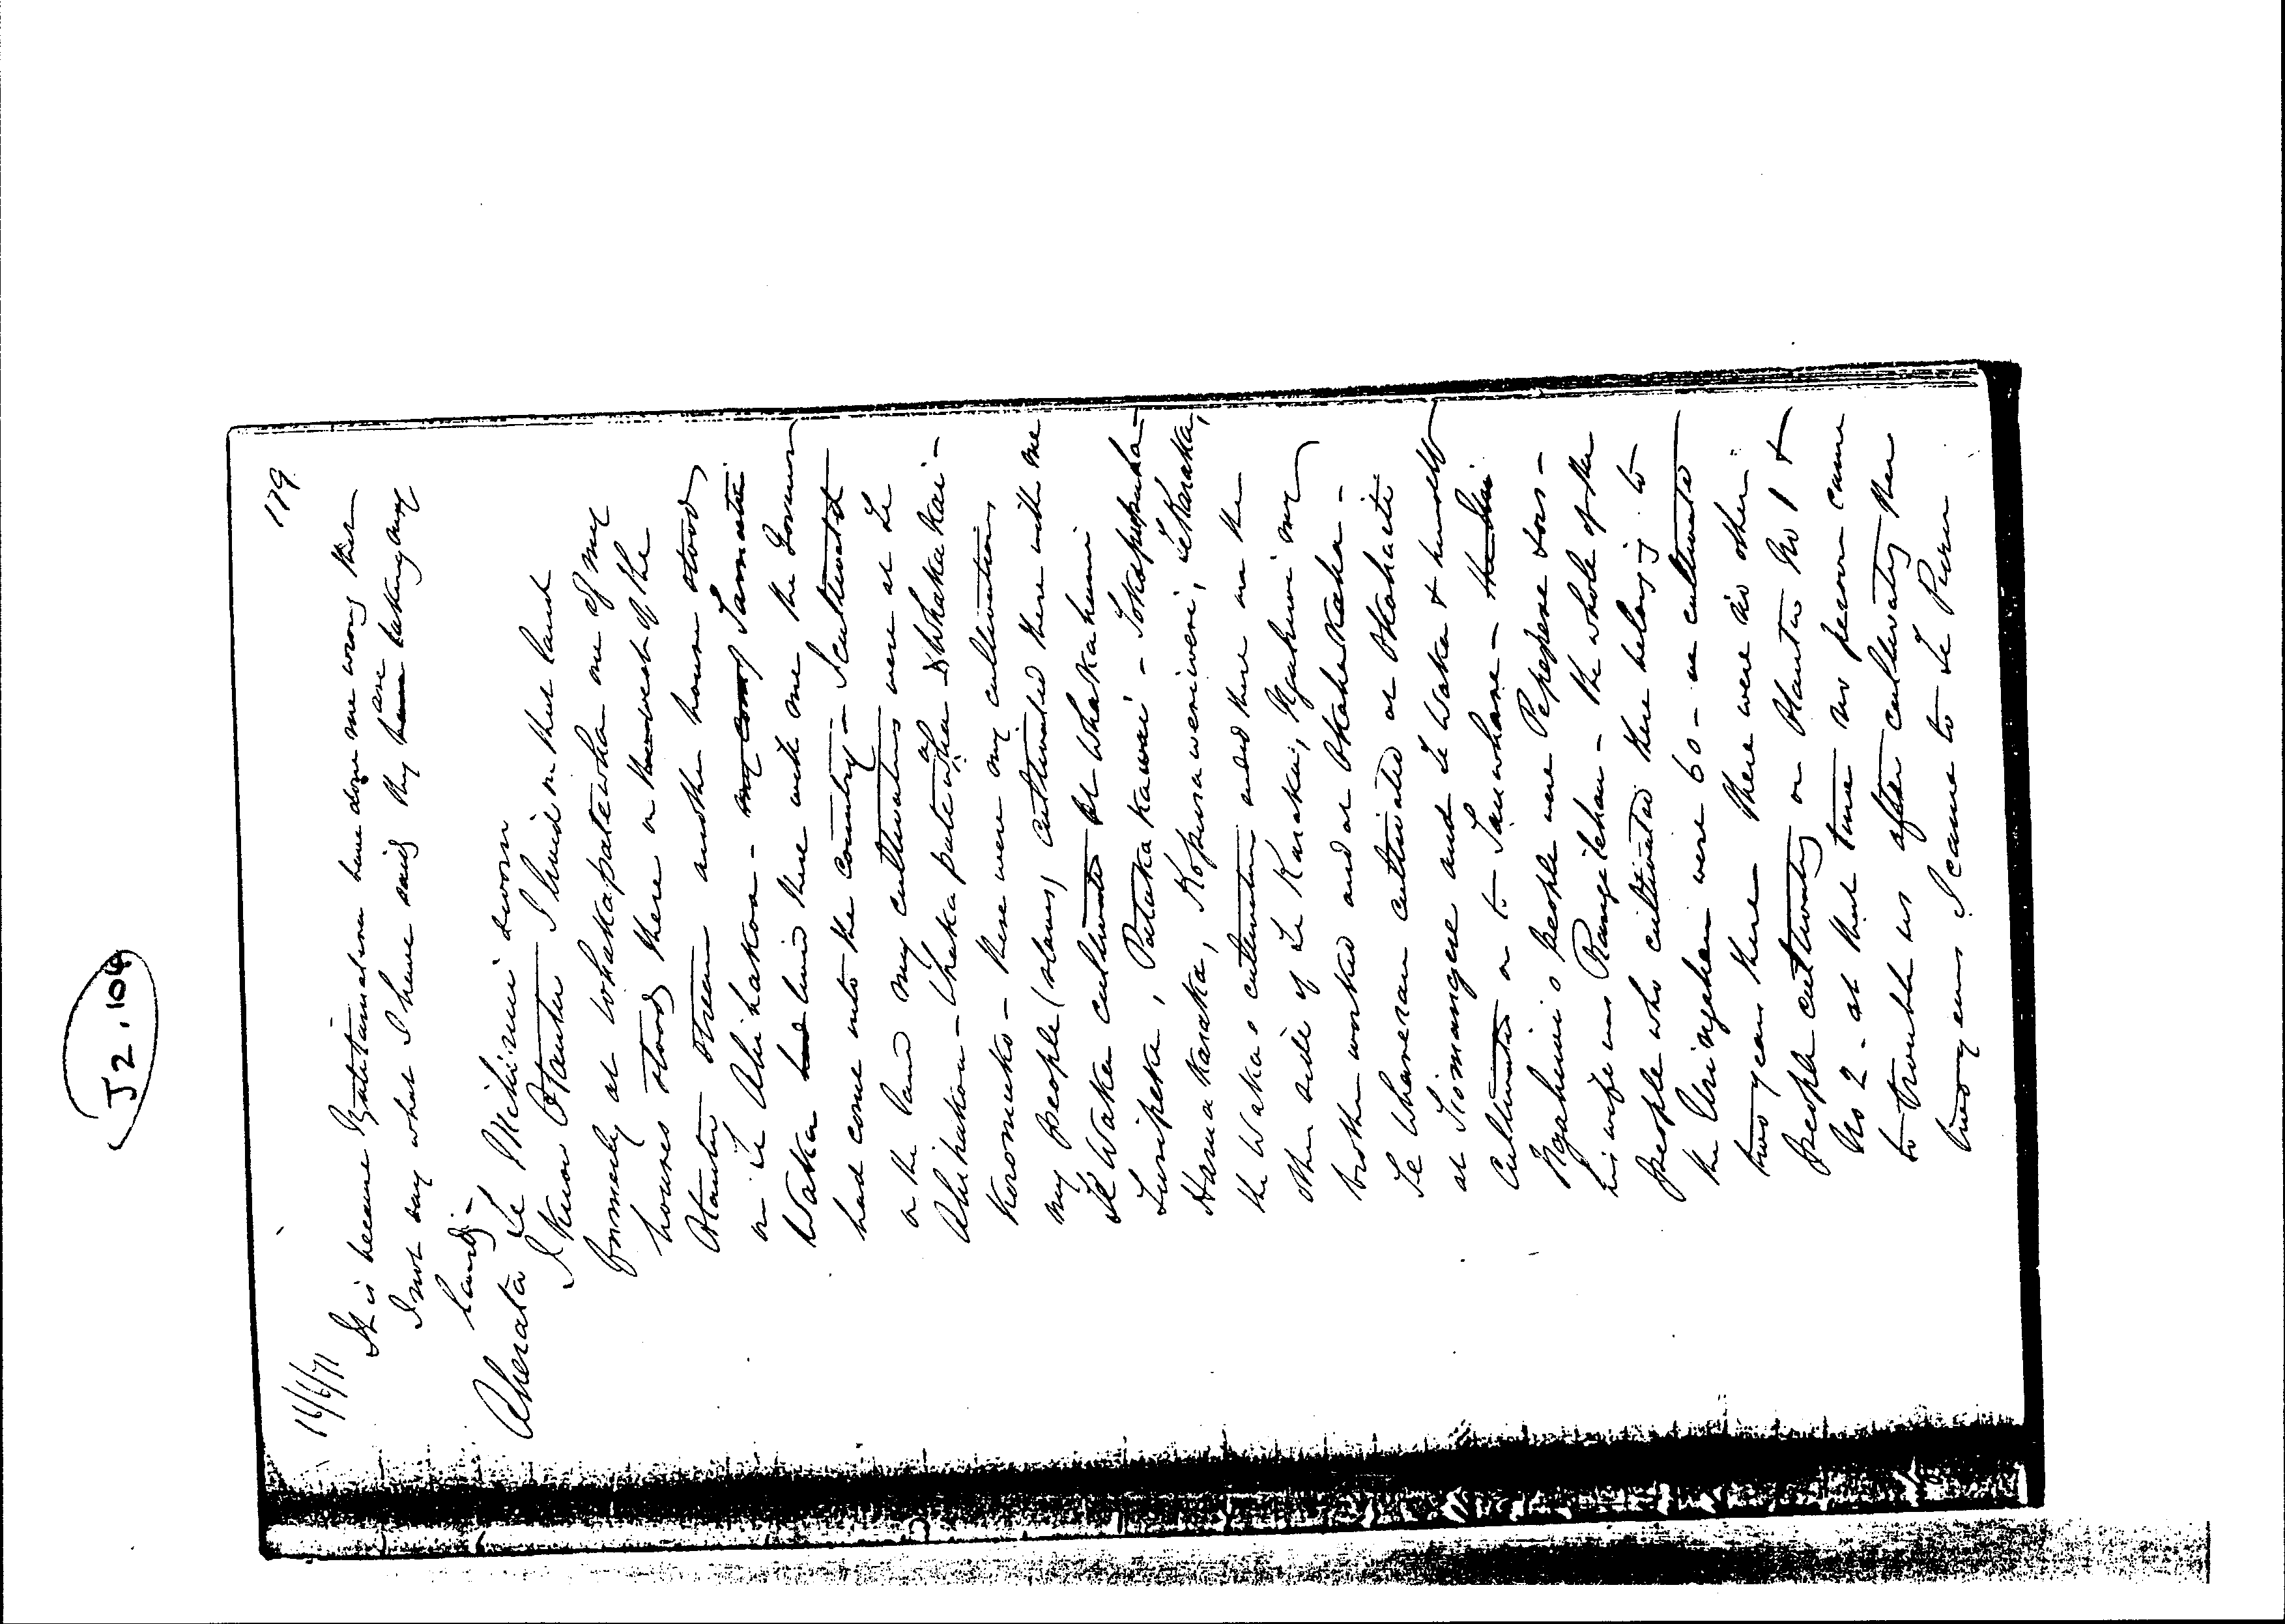 J2.104
16/6/71
179
It is because Ngatitamatera have done me wrong that
I not say what I have said they have are taking my
land -
Aherata Te Mihinui sworn
I know Otautu I lived on that land
formerly at Whakapatewha one of my
houses stood there on the west of the
Otautu Stream another house stood
on Te Ahihakoa - my
Waka had lived there with me the Governor
had come into the country - I cultivated
on the land my cultivations were at Te
Ahihakoa - & Whakakai -
Koromuko - these were my cultivations
my people (slaves) cultivated there with me
Te Waka cultivated at Whakahumi
Turipeka, Patukakawai -
Haruakaraka, Kopuraweriweri, Te Karaka,
the Waka's cultivations ended there on the
other side of Te Karaka, Ngahuwi my
brother worked and at Okahukaha -
Te Wharerau cultivated at Okohaeite
at Tiromangere and Te Waka & himself
cultivated on to Tauwhare -
Ngahuwi's people were Pepepepe & ors -
his wife was Rangitehau - the whole of the
people who cultivated there belong to
the Uringahau were 60 - we cultivated
two years there - there were no other
people cultivating on Otautu No 1 &
No 2 - at that time no person came
to trouble us after cultivating there
two years I came to Te Puru